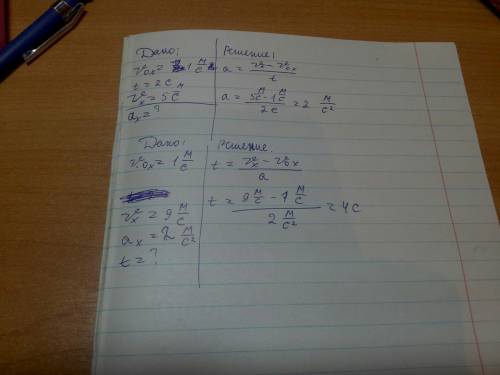 Дано:
v₀ₓ = 1 м/с
t = 2с
vₓ = 5 м/с
aₓ = ?
Решение:
a = (vₓ - v₀ₓ)/t
a = (5 м/с - 1 м/с)/2с = 2 м/с²
Дано:
v₀ₓ = 1 м/с
vₓ = 9 м/с
aₓ = 2 м/с²
t = ?
Решение
t = (vₓ - v₀ₓ)/a
t = (9 м/с - 1 м/с)/(2 м/с²) = 4с